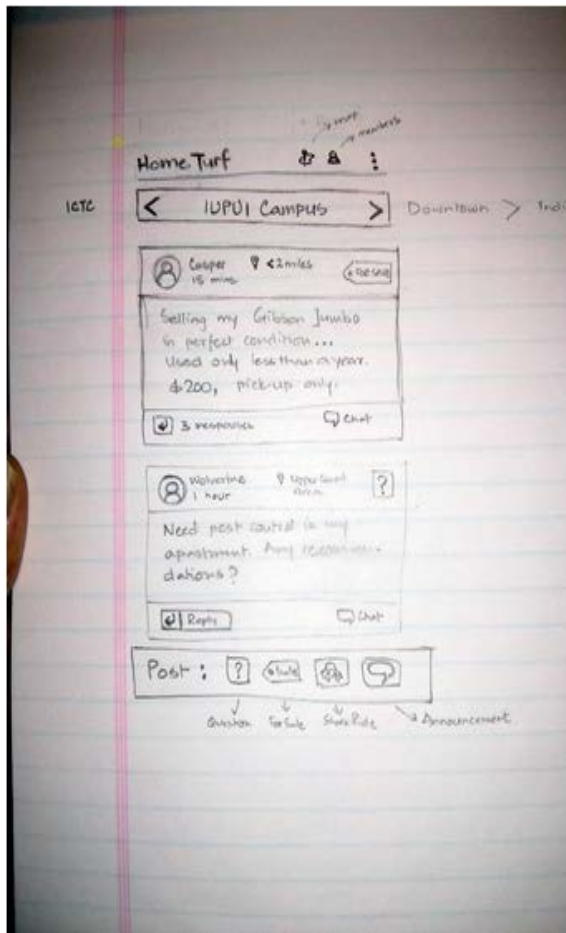 members
Home Turf
ICTC < IUPUI Campus > Downtown > Indi
Casper <2miles For Sale
15 mins
Selling my Gibson Jumbo
in perfect condition...
Used only less than a year.
$200, pick-up only.
3 responses Chat
Wolverine
1 hour ?
Need pest control in my
apartment. Any recommen-
dations?
Reply Chat
Post: ? Sale
Question For Sale Share Ride Announcement